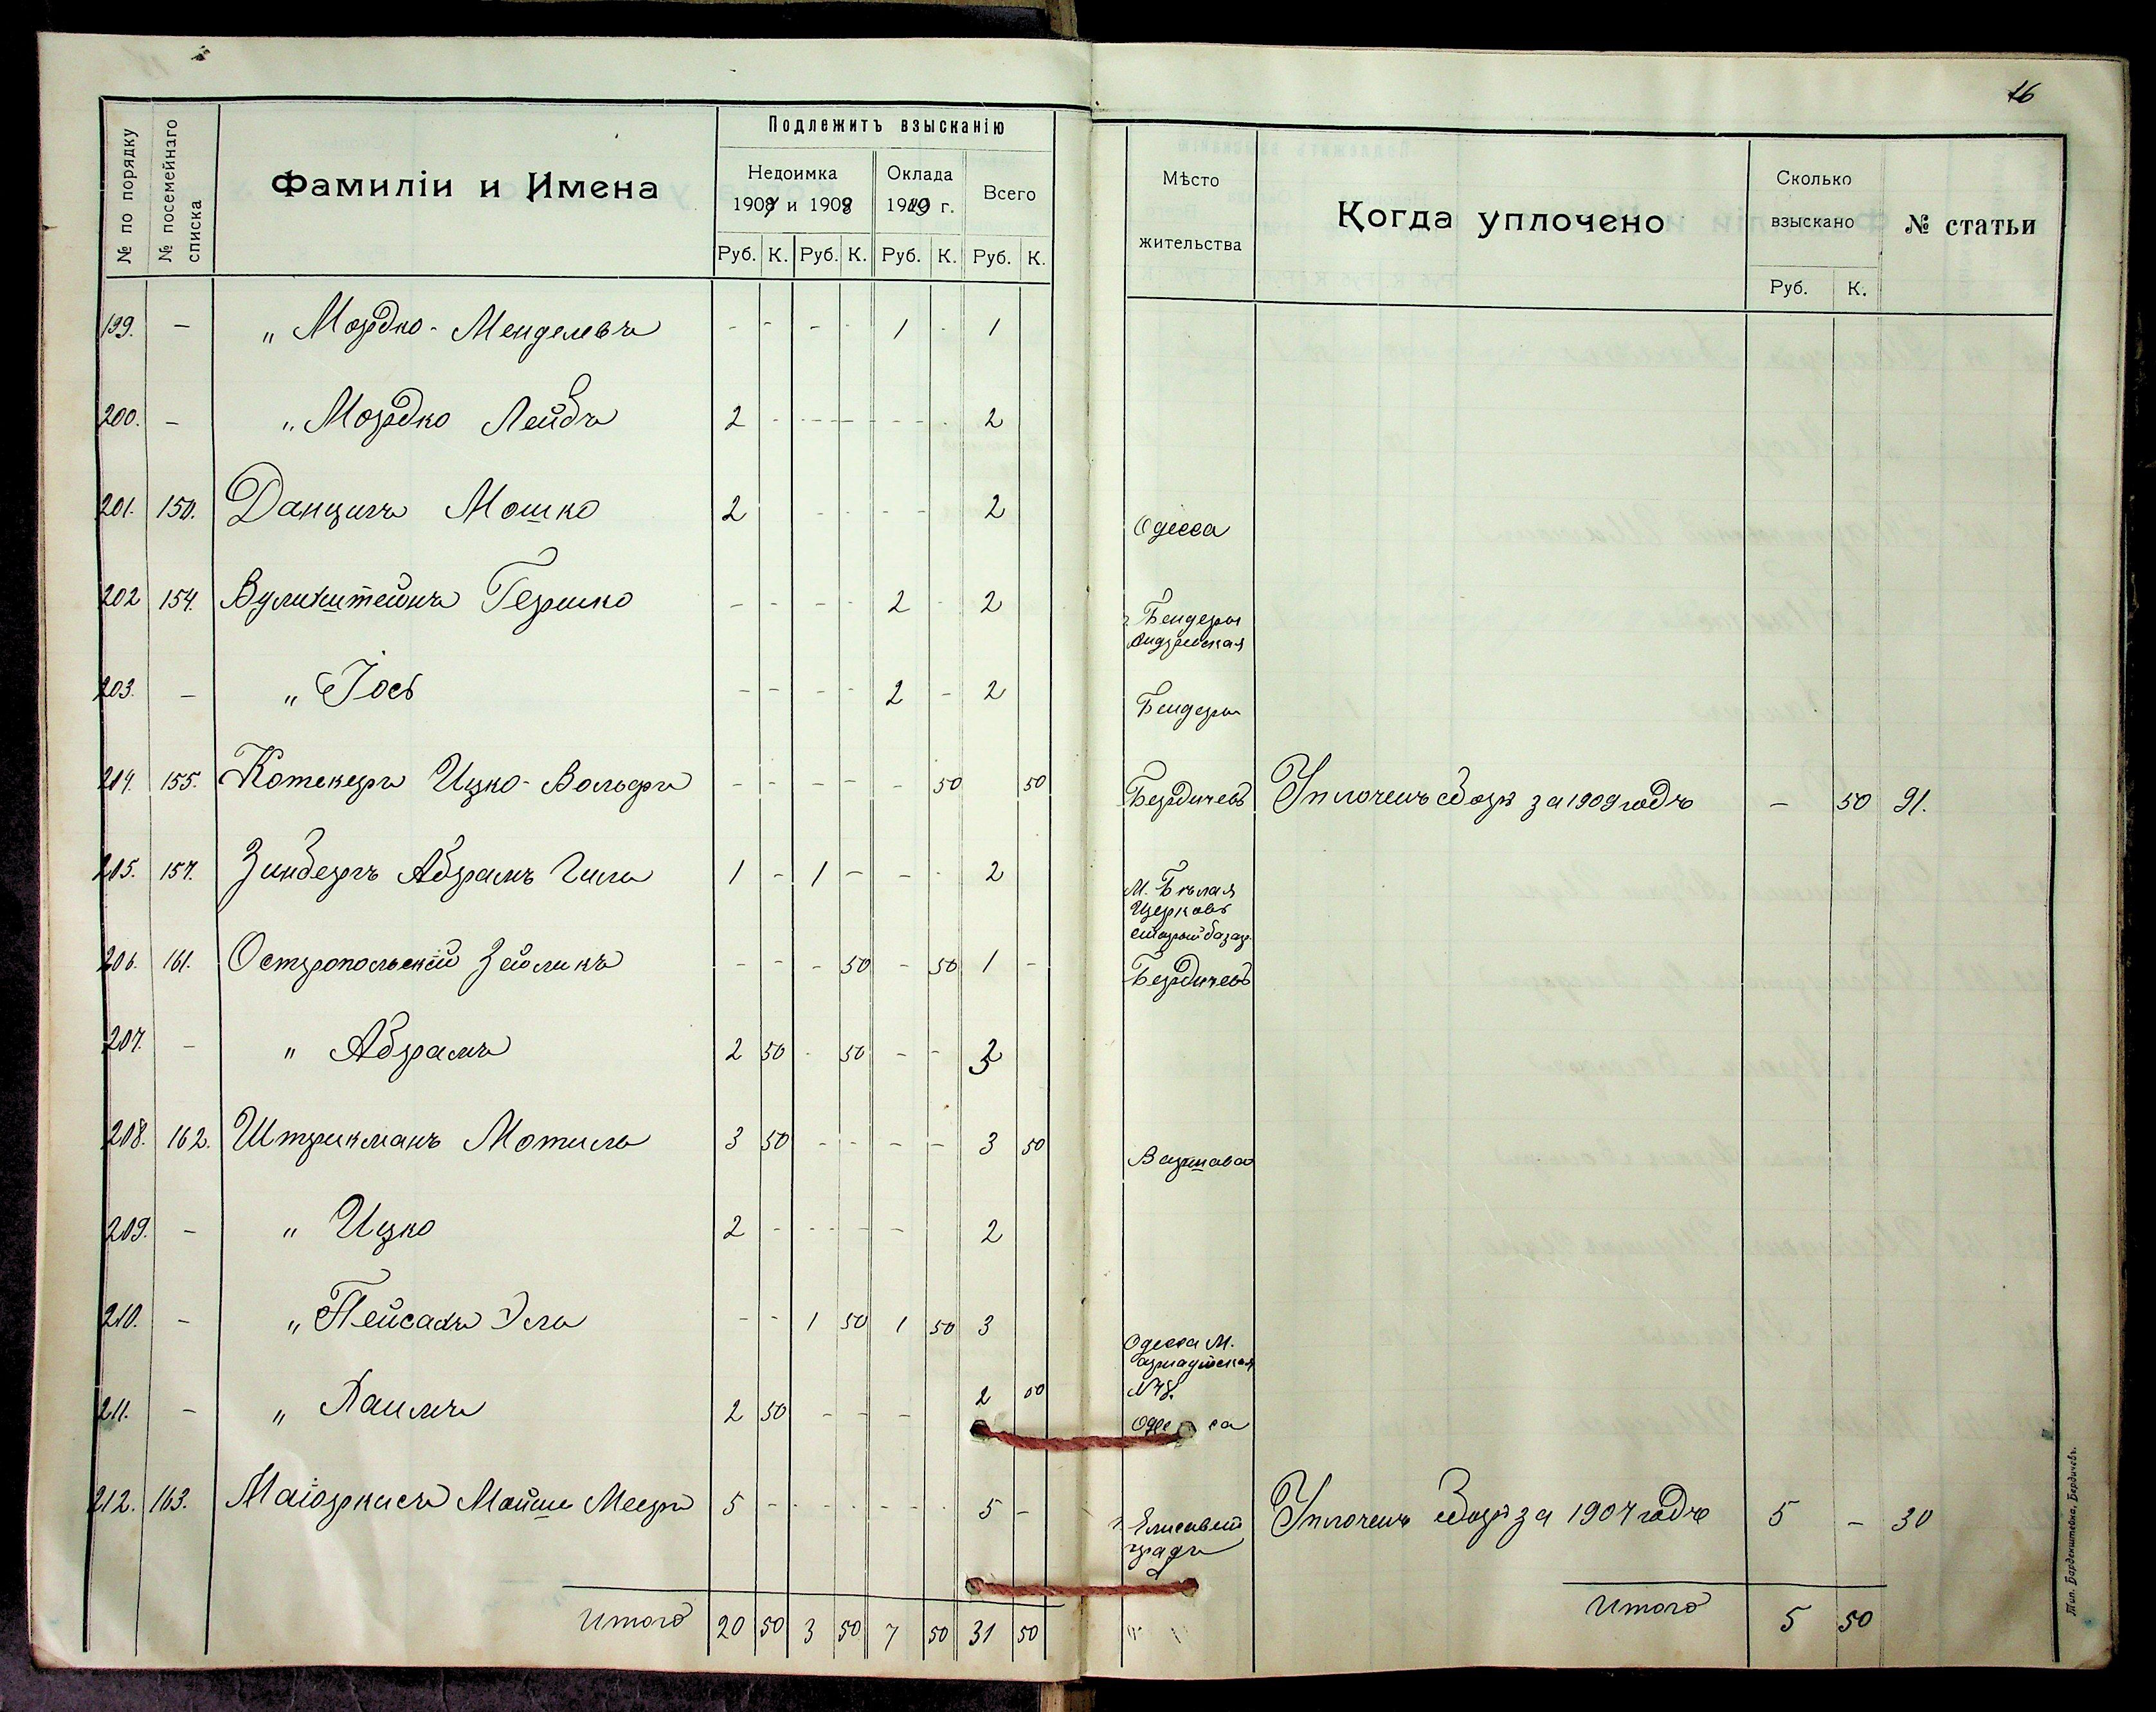 16
№ по порядку
№ посемейнаго списка
Фамиліи и Имена
Подлежитъ взысканію
Недоимка 1907 и 1908
Оклада 1909 г.
Всего
Руб. К. Руб. К. Руб. К. Руб. К.
Мѣсто жительства
Когда уплочено
Сколько взыскано
Руб. К.
№ статьи
199. — „ Мордко-Менделевъ - - - - 1 - 1
200. — „ Мордко Лейбъ 2 - - - - - - 2
201. 150. Данцигъ Мошко 2 - - - 2 Одесса
202 154. Вулихштейнъ Гершко - - - - 2 - 2 Бендеры
203. — „ Іось - - - - 2 - 2 Бендеры
204. 155. Котекеръ Ицко-Вольфъ - - - - - 50 50 Бердичевъ Уплоченъ сборъ за 1909 годъ — 50 91.
205. 157. Зинбергъ Абрамъ Гиль 1 - 1 - - - 2 М. Бѣлая
Церковь
старый базар.
206. 161. Остропольскій Зейликъ - - - 50 - 50 1 - Бердичевъ
207. — „ Абрамъ 2 50 - 50 - - 3
208. 162. Штрикманъ Мотиль 3 50 - - - - 3 50 Варшава
209. — „ Ицко 2 - - - - - 2
210. — „ Пейсахъ Эль - - 1 50 1 50 3 Одесса М.
Арнаутская
№ 48.
211. — „ Хаимъ 2 50 - - - 2 50 Одесса
212. 163. Маіоркисъ Мойше Мееръ 5 - - - - - - 5 - Елисавет
градъ Уплоченъ сборъ за 1907 годъ 5 — 30
Итого 20 50 3 50 7 50 31 50
Итого 5 50
Тип. Барденштейна, Бердичевъ.